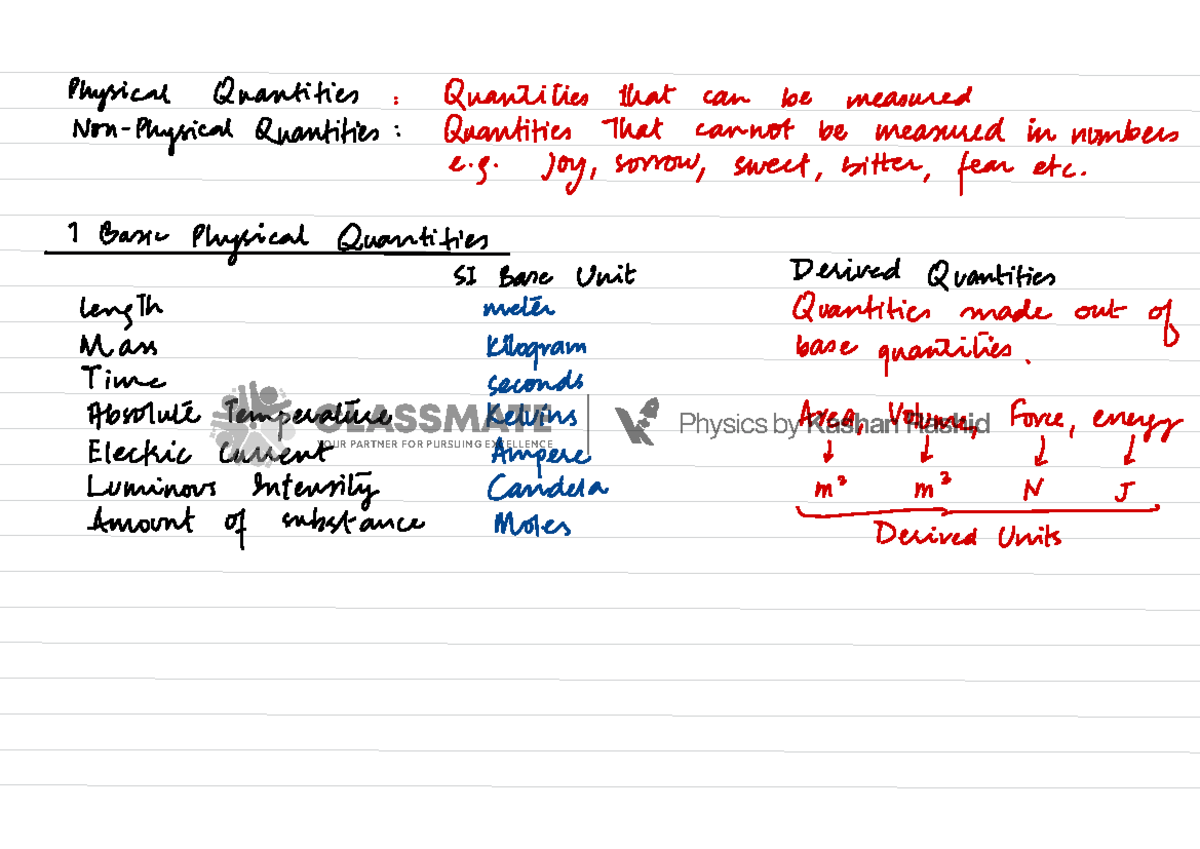 Physical Quantities : Quantities that can be measured
Non-Physical Quantities : Quantities That cannot be measured in numbers
e.g. Joy, sorrow, sweet, bitter, fear etc.
7 Basic Physical Quantities
SI Base Unit
Length meter
Mass Kilogram
Time seconds
Absolute Temperature Kelvins
Electric Current Ampere
Luminous Intensity Candela
Amount of substance Moles
Derived Quantities
Quantities made out of
base quantities.
Area, Volume, Force, energy
m² m³ N J
Derived Units
CLASSMATE
YOUR PARTNER FOR PURSUING EXCELLENCE
Physics by Kashan Rashid